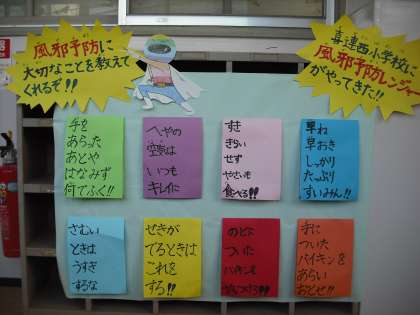 風邪予防に
大切なことを教えて
くれるぞ!!
喜連西小学校に
風邪予防レンジャー
がやってきた!!
手を
あらった
あとや
はなみず
何でふく!!
へやの
空気は
いつも
キレイに
すき
きらい
せず
やさいも
食べる!!
早ね
早おき
しっかり
たっぷり
すいみん!!
さむい
ときは
うすぎ
するな
せきが
でるときは
これを
する!!
のどに
ついた
バイキンを
手に
ついた
バイキンを
あらい
おとせ!!